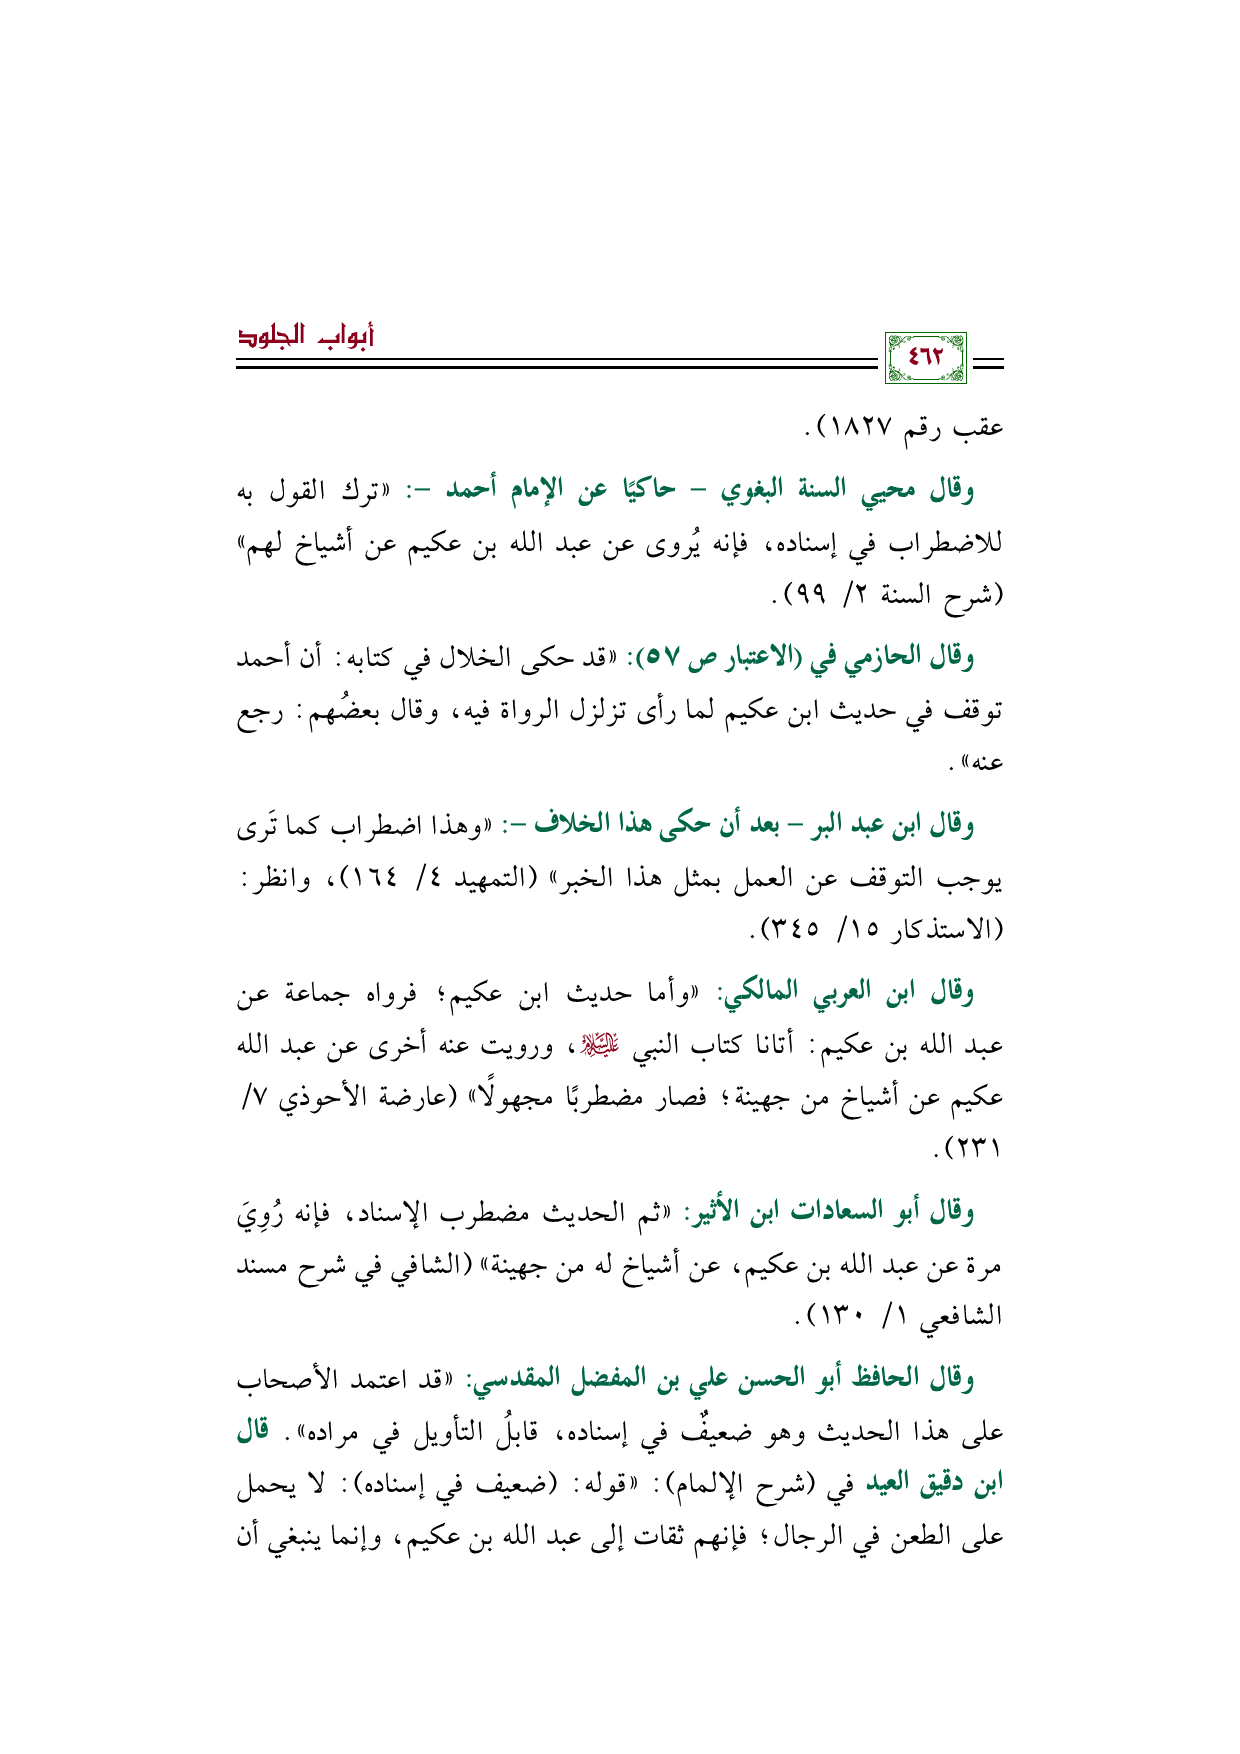 أبواب الجلود
٤٦٢
عقب رقم ١٨٢٧).
وقال محيي السنة البغوي – حاكيًا عن الإمام أحمد –: «ترك القول به
للاضطراب في إسناده، فإنه يُروى عن عبد الله بن عكيم عن أشياخ لهم»
(شرح السنة ٢/ ٩٩).
وقال الحازمي في (الاعتبار ص ٥٧): «قد حكى الخلال في كتابه: أن أحمد
توقف في حديث ابن عكيم لما رأى تزلزل الرواة فيه، وقال بعضُهم: رجع
عنه».
وقال ابن عبد البر – بعد أن حكى هذا الخلاف –: «وهذا اضطراب كما تَرى
يوجب التوقف عن العمل بمثل هذا الخبر» (التمهيد ٤/ ١٦٤)، وانظر:
(الاستذكار ١٥/ ٣٤٥).
وقال ابن العربي المالكي: «وأما حديث ابن عكيم؛ فرواه جماعة عن
عبد الله بن عكيم: أتانا كتاب النبي عليه السلام، ورويت عنه أخرى عن عبد الله
عكيم عن أشياخ من جهينة؛ فصار مضطربًا مجهولًا» (عارضة الأحوذي ٧/
٢٣١).
وقال أبو السعادات ابن الأثير: «ثم الحديث مضطرب الإسناد، فإنه رُوِيَ
مرة عن عبد الله بن عكيم، عن أشياخ له من جهينة» (الشافي في شرح مسند
الشافعي ١/ ١٣٠).
وقال الحافظ أبو الحسن علي بن المفضل المقدسي: «قد اعتمد الأصحاب
على هذا الحديث وهو ضعيفٌ في إسناده، قابلُ التأويل في مراده». قال
ابن دقيق العيد في (شرح الإلمام): «قوله: (ضعيف في إسناده): لا يحمل
على الطعن في الرجال؛ فإنهم ثقات إلى عبد الله بن عكيم، وإنما ينبغي أن